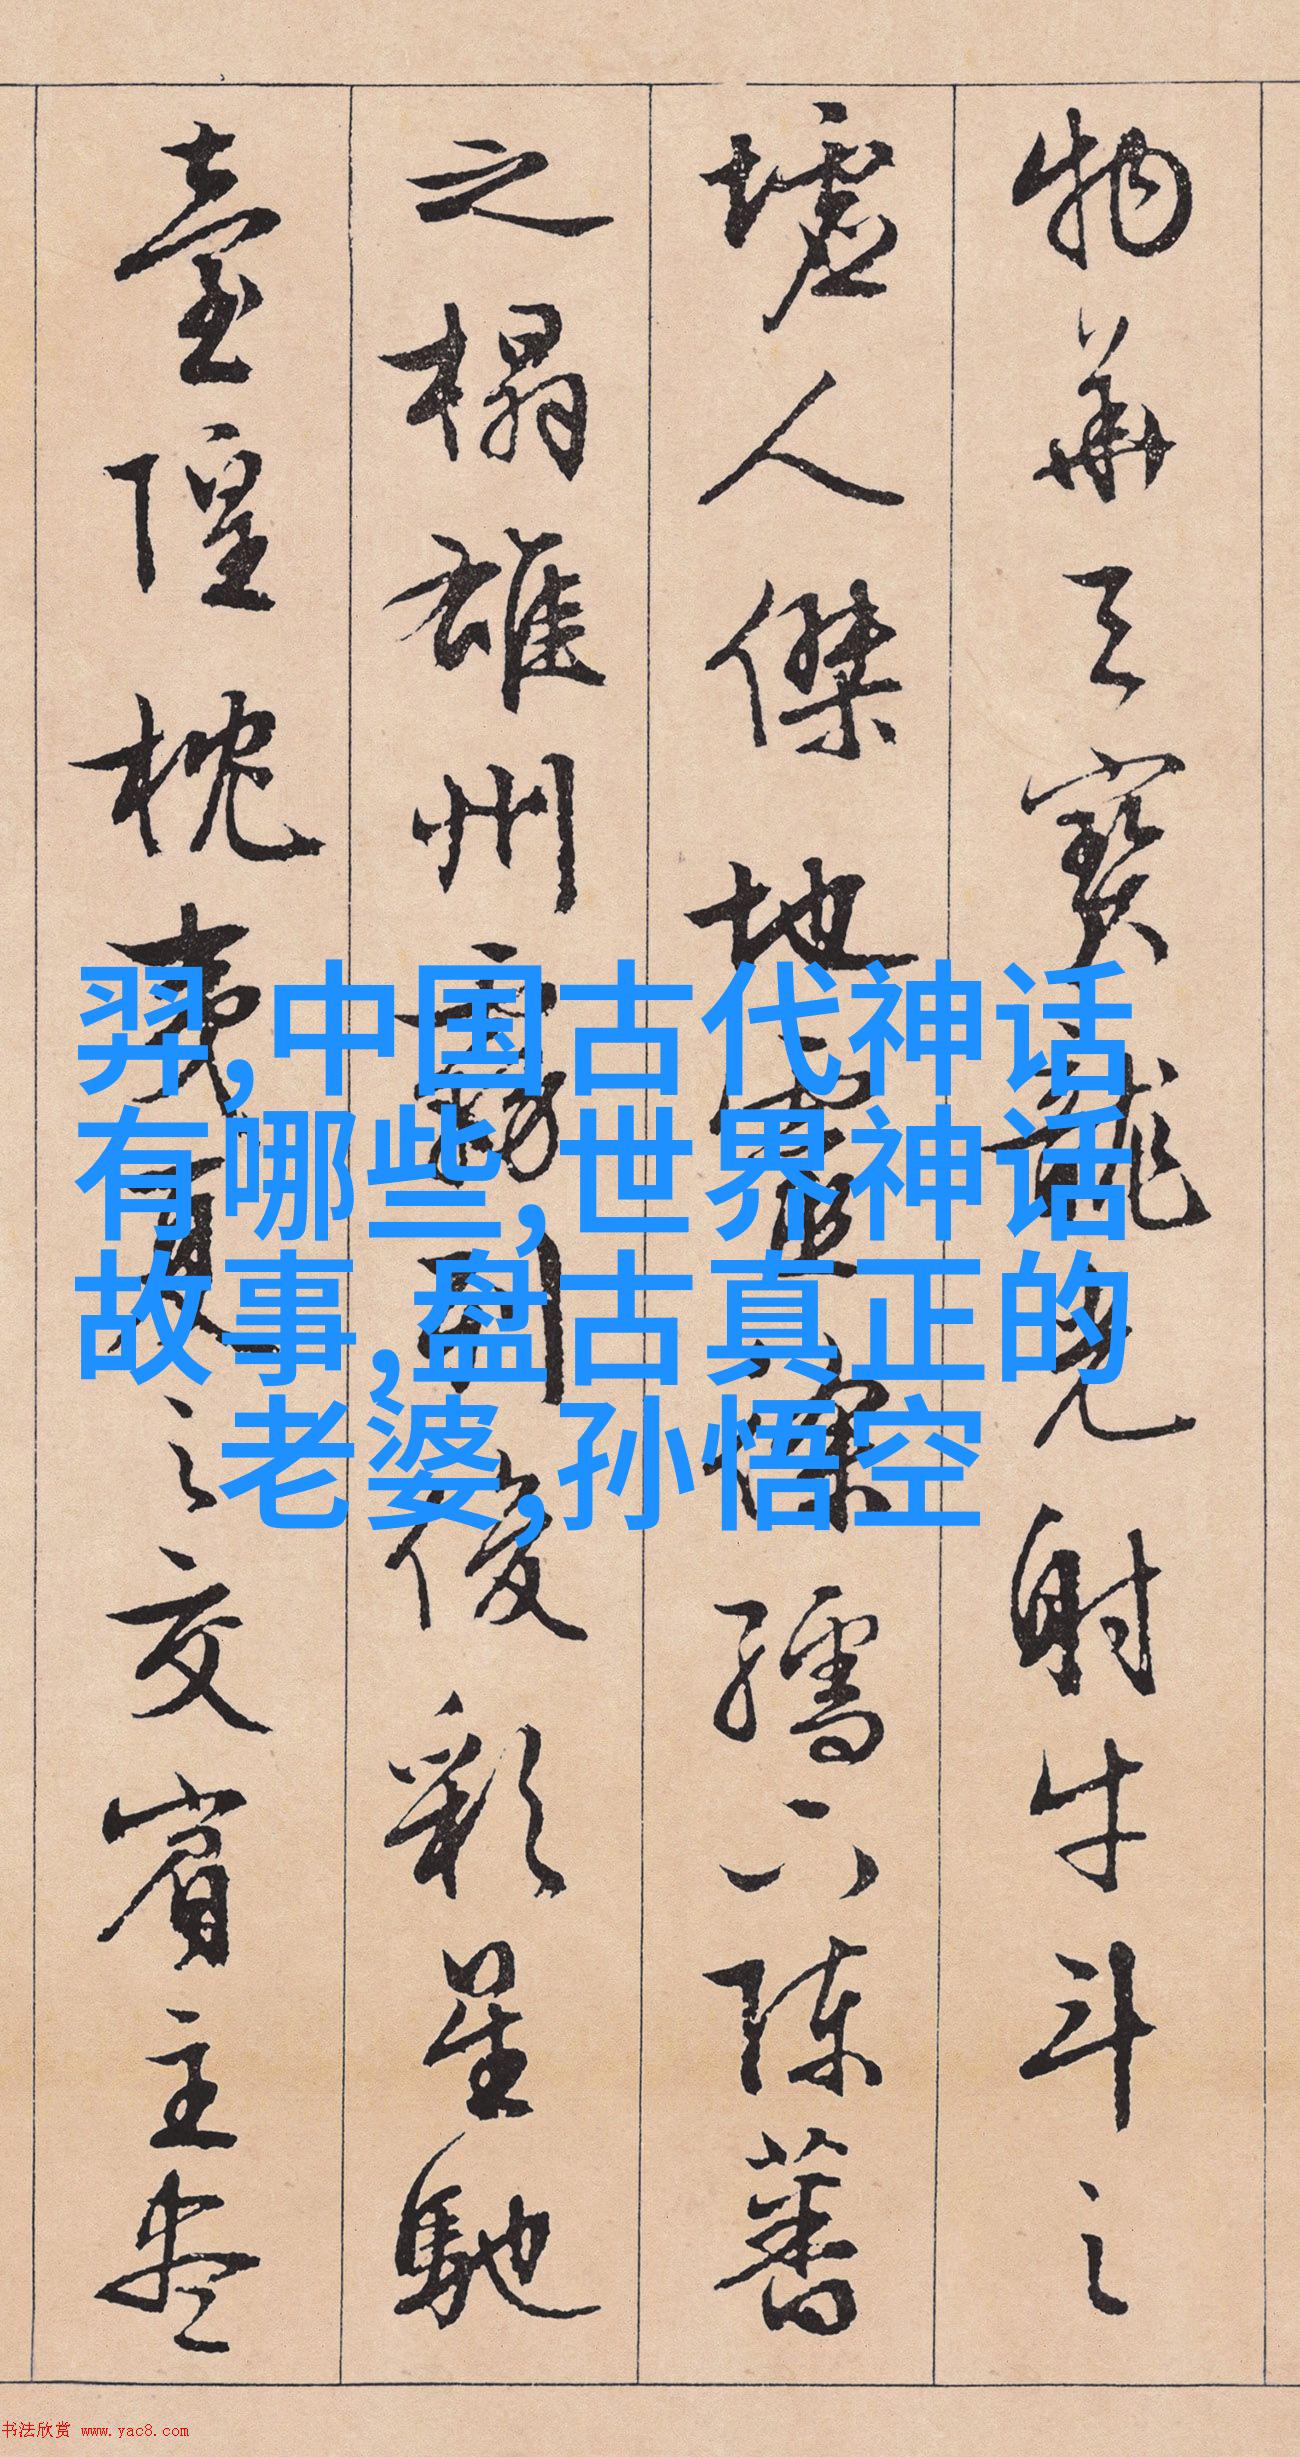 物華天寶龍光射牛斗之
墟人傑地靈徐孺下陳蕃
之榻雄州霧列俊彩星馳
臺隍枕夷夏之交賓主盡
羿,中国古代神话
有哪些,世界神话
故事,盘古真正的
老婆,孙悟空
书法欣赏 www.yac8.com